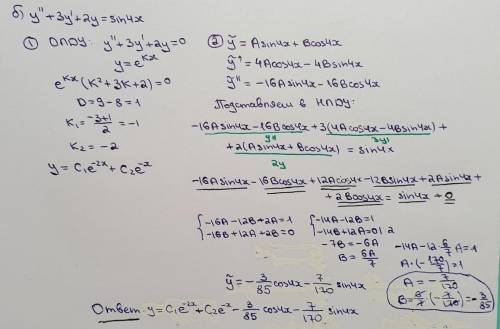 б) y'' + 3y' + 2y = sin4x
① ОЛОУ: y'' + 3y' + 2y = 0
y = e^{kx}
e^{kx}(k² + 3k + 2) = 0
D = 9 - 8 = 1
k₁ = \frac{-3+1}{2} = -1
k₂ = -2
y = C₁e^{-2x} + C₂e^{-x}
② ỹ = Asin4x + Bcos4x
ỹ' = 4Acos4x - 4Bsin4x
ỹ'' = -16Asin4x - 16Bcos4x
Подставляем в НЛОУ:
-16Asin4x - 16Bcos4x + 3(4Acos4x - 4Bsin4x) +
y'' 3y'
+ 2(Asin4x + Bcos4x) = sin4x
2y
-16Asin4x - 16Bcos4x + 12Acos4x - 12Bsin4x + 2Asin4x +
+ 2Bcos4x = sin4x + 0
{ -16A - 12B + 2A = 1
-16B + 12A + 2B = 0
{ -14A - 12B = 1
-14B + 12A = 0 | 2
-7B = -6A
B = \frac{6A}{7}
-14A - 12·\frac{6}{7}A = 1
A·(-\frac{170}{7}) = 1
A = -\frac{7}{170}
B = \frac{6}{7}·(-\frac{7}{170}) = -\frac{3}{85}
ỹ = -\frac{3}{85}cos4x - \frac{7}{170}sin4x
Ответ: y = C₁e^{-2x} + C₂e^{-x} - \frac{3}{85}cos4x - \frac{7}{170}sin4x